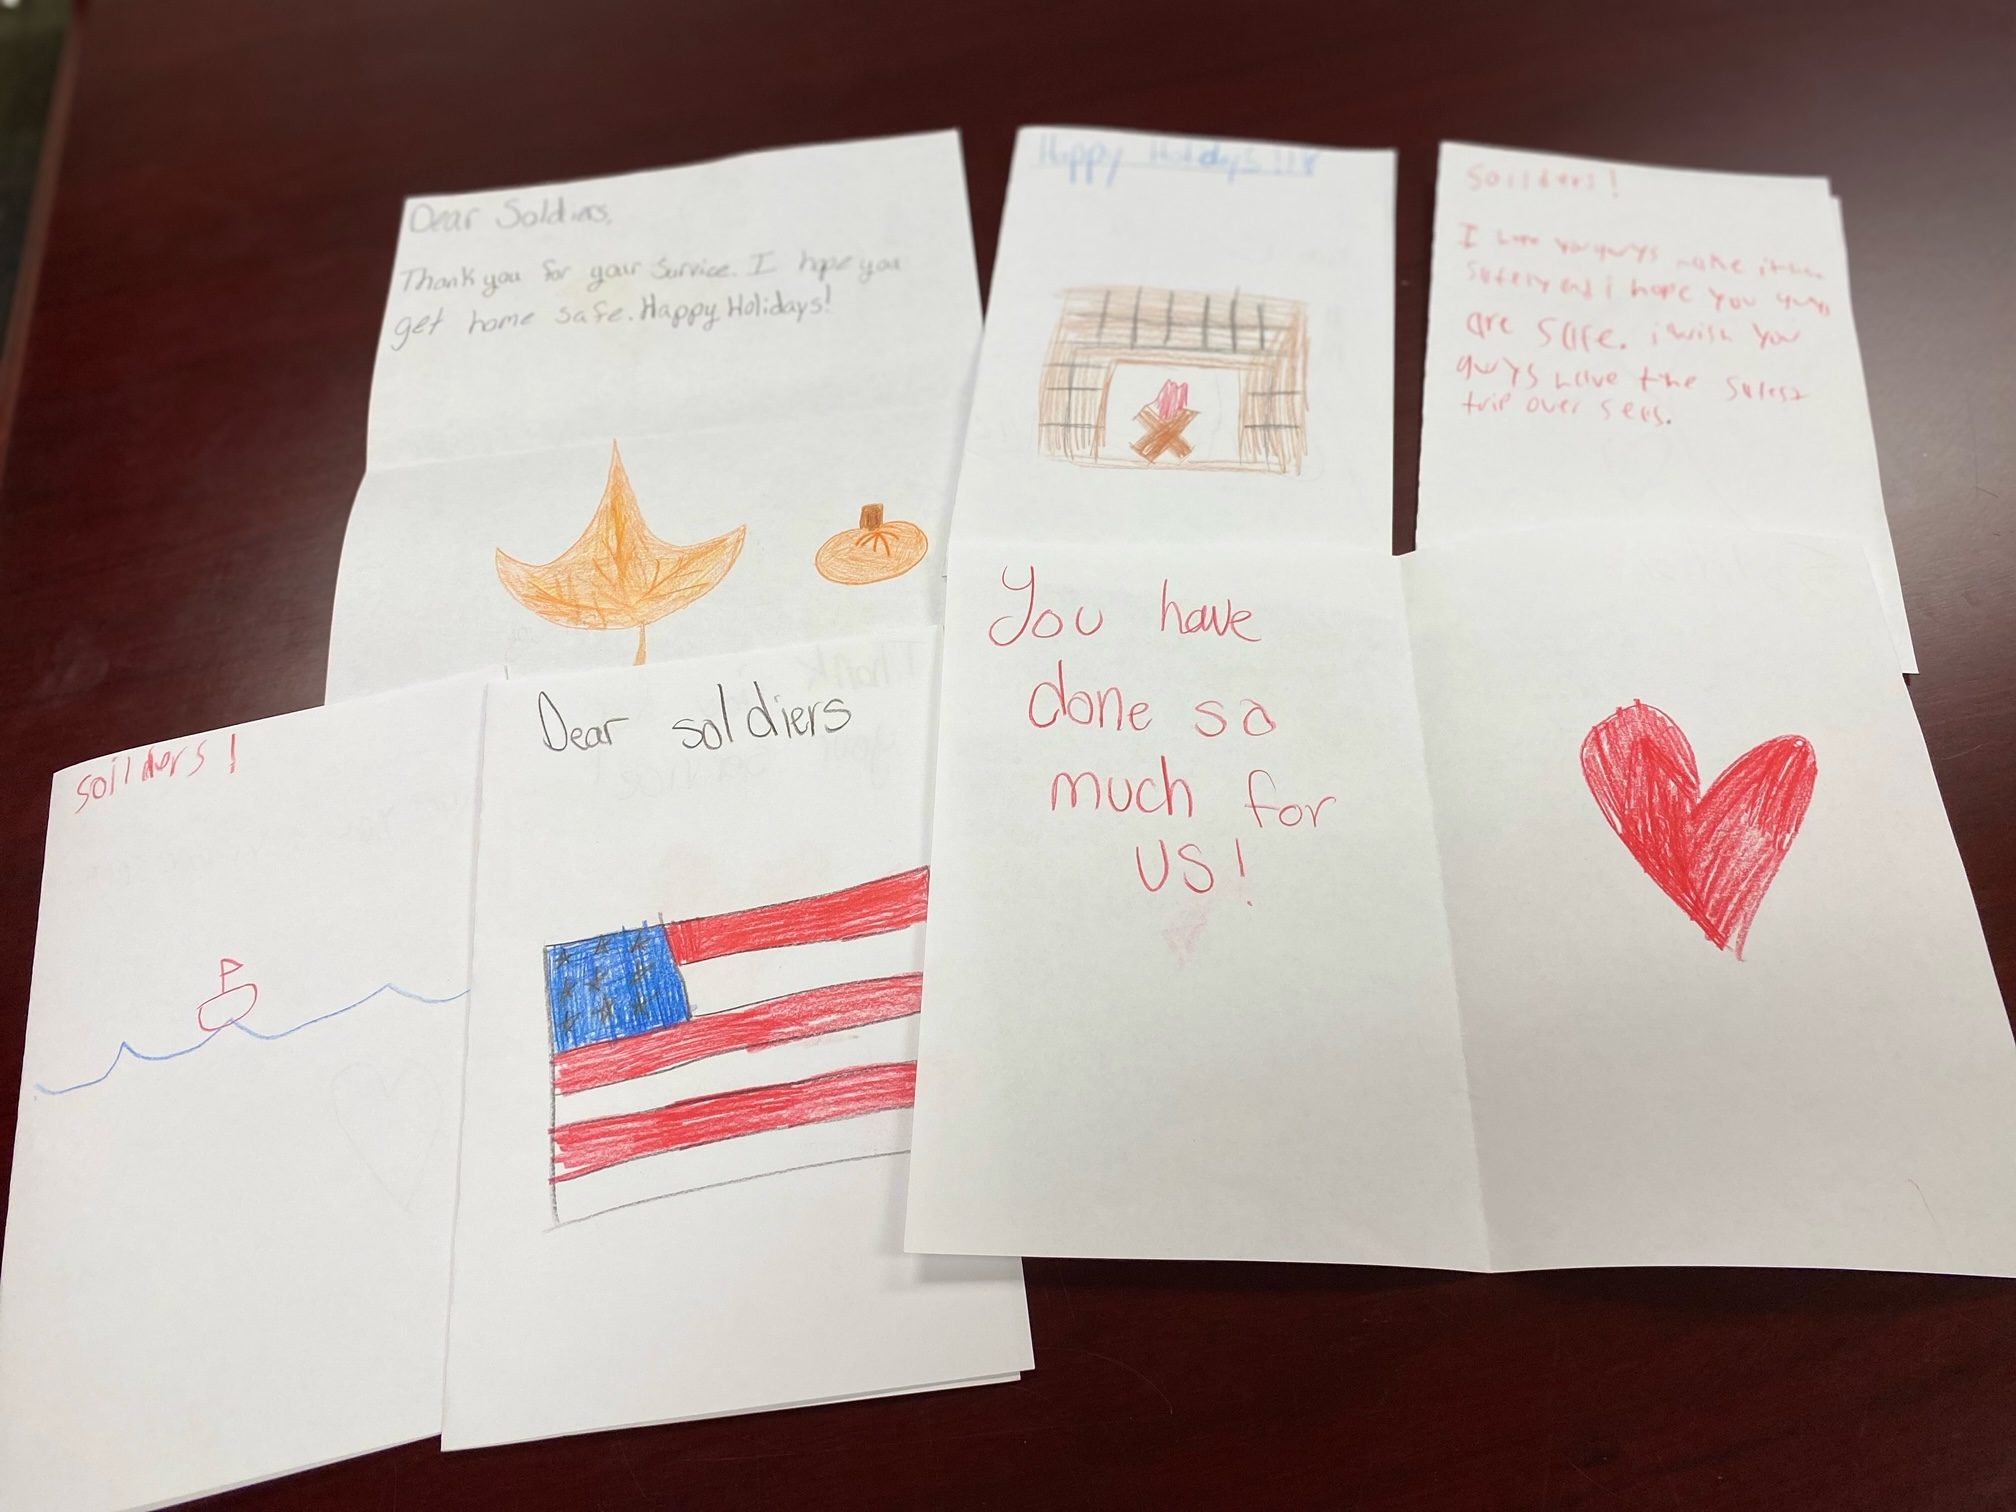 Dear Soldiers,
Thank you for your Service. I hope you
get home safe. Happy Holidays!
Happy Holidays!!!
soilders!
I hope you guys make it
safely and i hope you guys
are safe. i wish you
guys have the safest
trip over sees.
soilders!
Dear soldiers
You have
done so
much for
US!